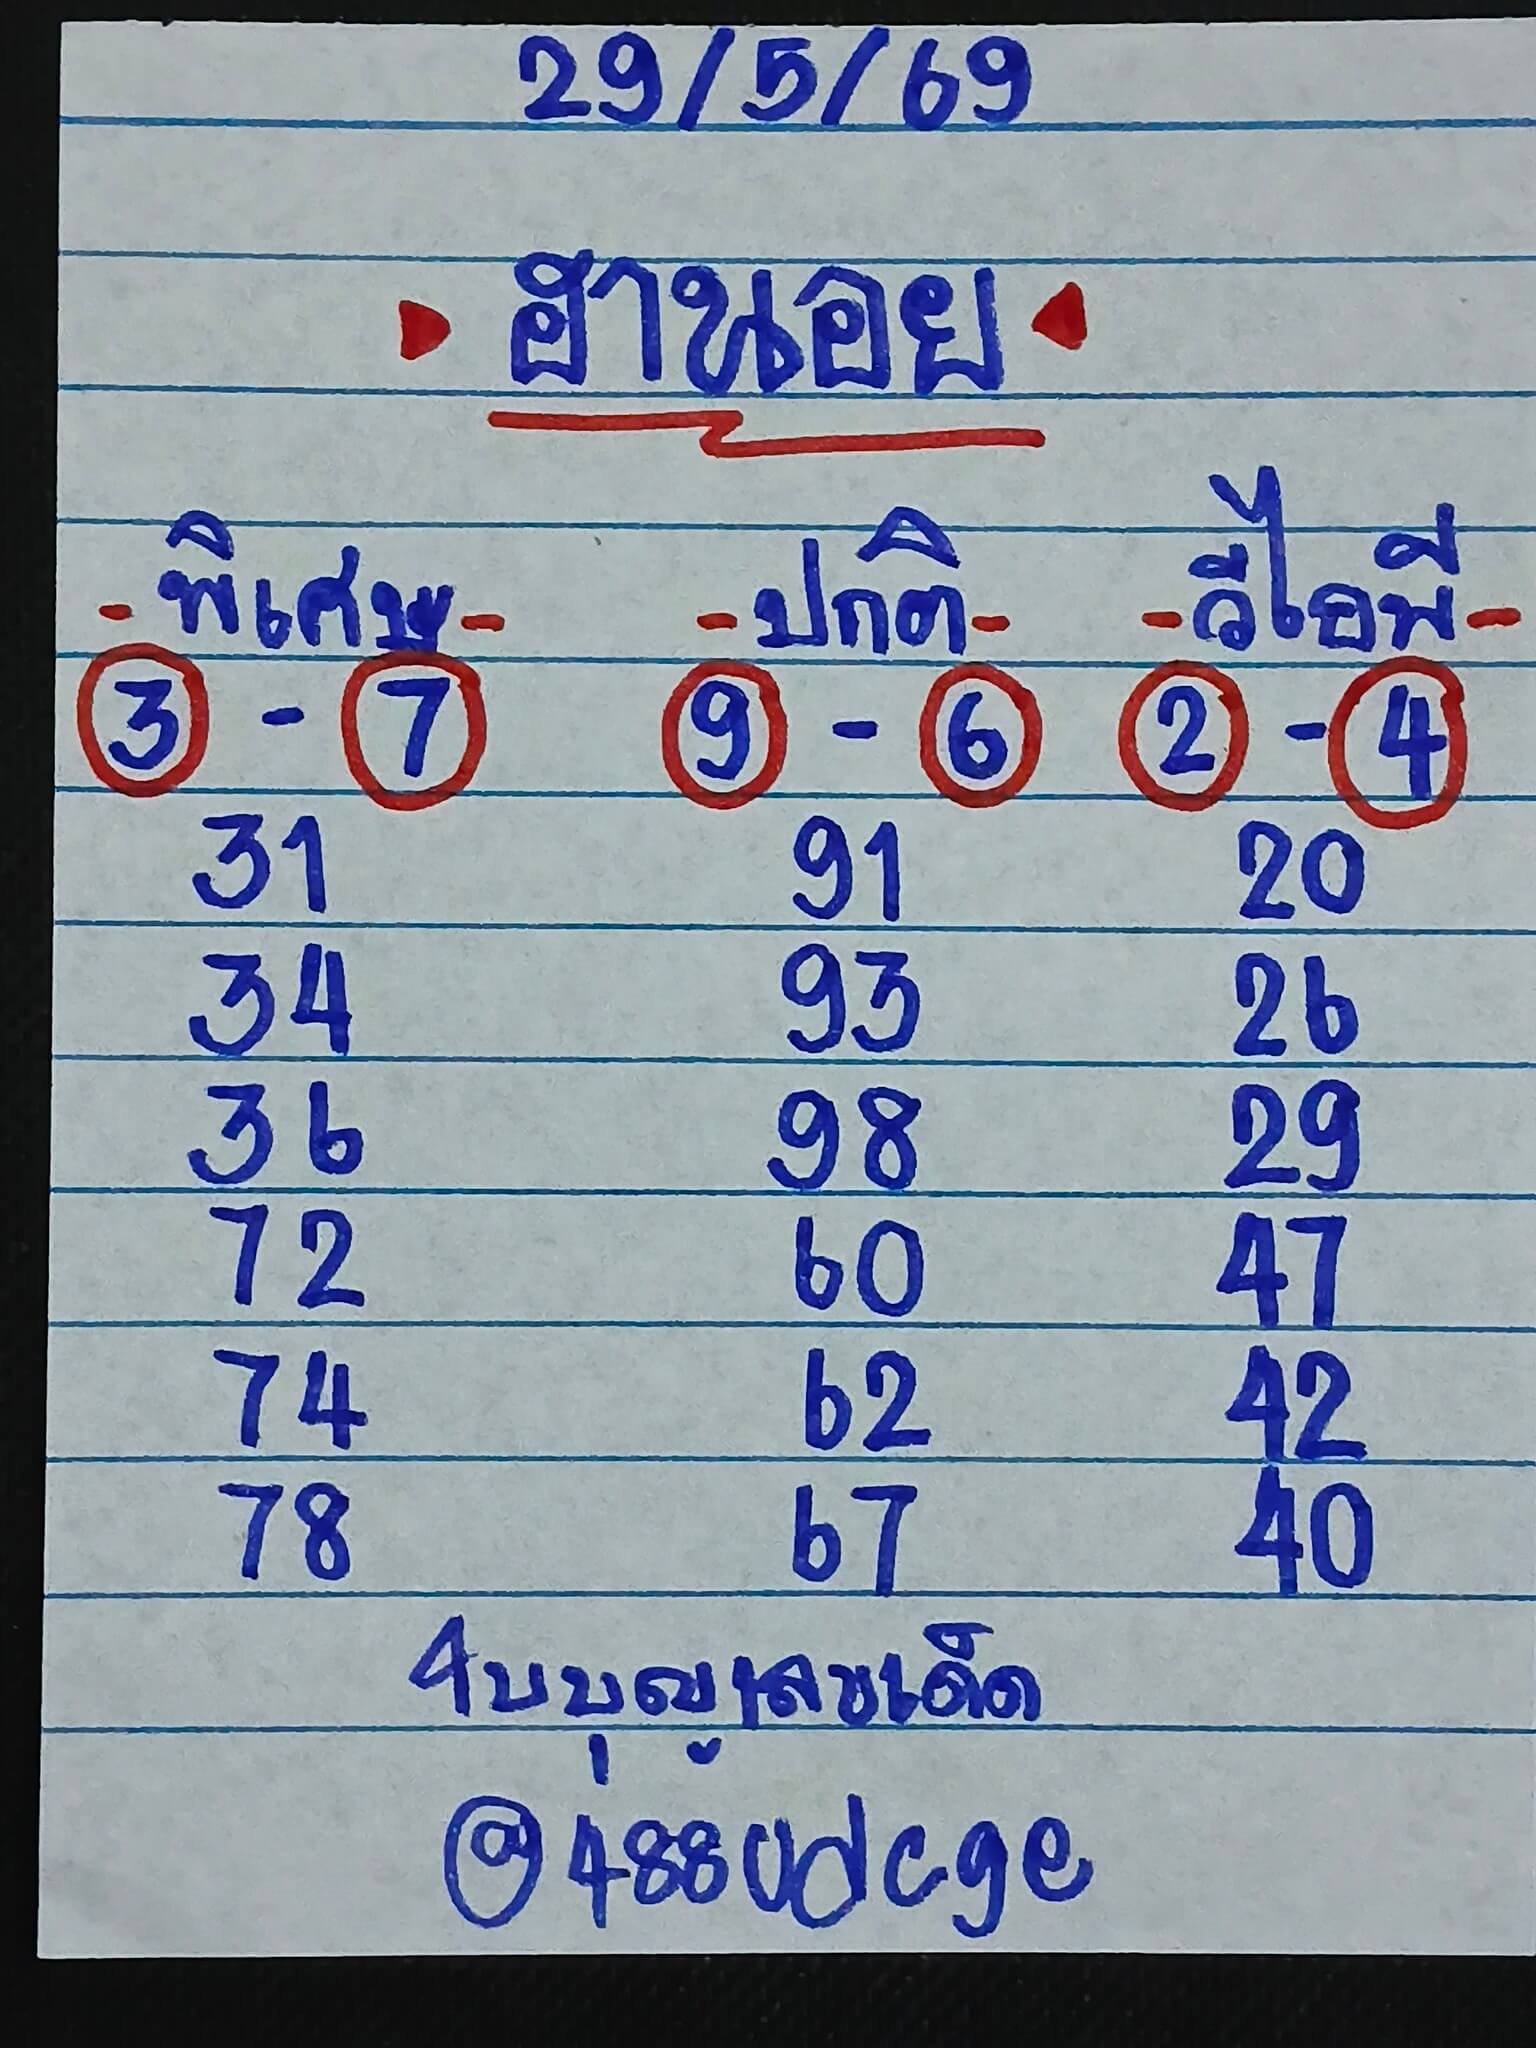 29/5/69
ฮานอย
-พิเศษ- -ปกติ- -วีไอพี-
3 - 7 9 - 6 2 - 4
31 91 20
34 93 26
36 98 29
72 60 47
74 62 42
78 67 40
เลขเด็ด
@488udcge